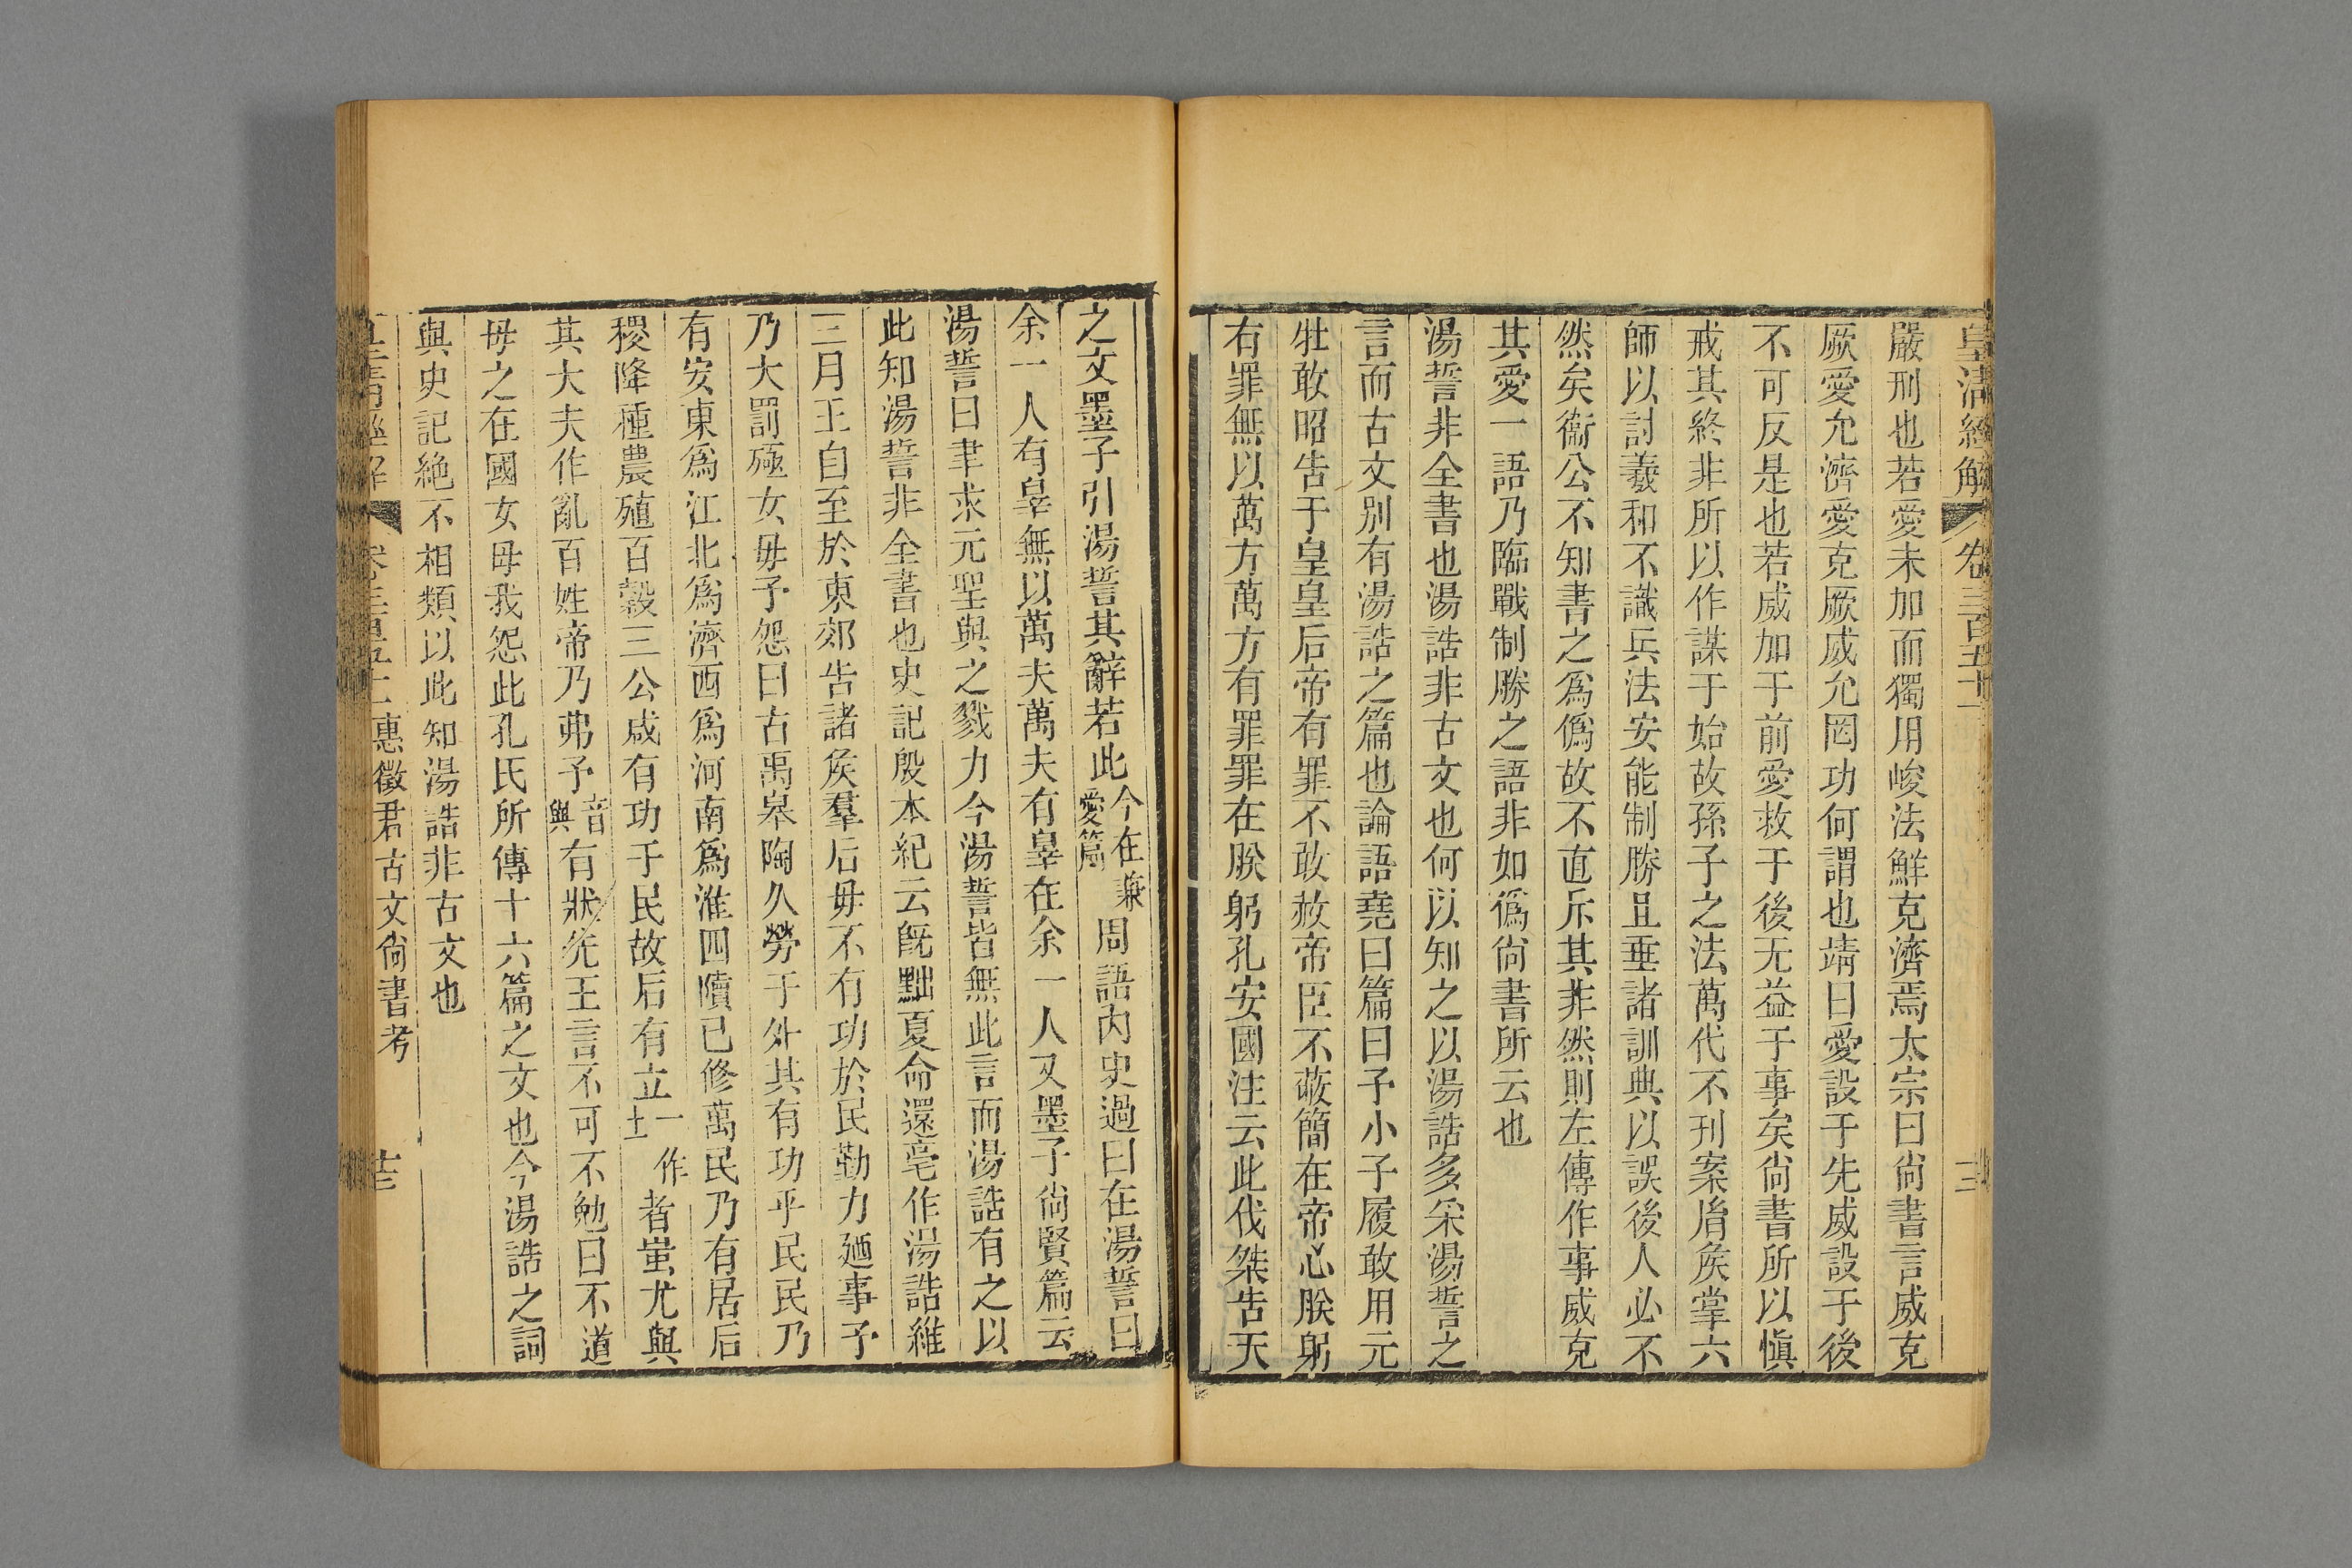 皇清經解 卷三百五十一 三
嚴刑也若愛未加而獨用峻法鮮克濟焉太宗曰尙書言威克
厥愛允濟愛克厥威允罔功何謂也靖曰愛設于先威設于後
不可反是也若威加于前愛救于後无益于事矣尙書所以愼
戒其終非所以作謀于始故孫子之法萬代不刋案㣧矦掌六
師以討羲和不識兵法安能制勝且垂諸訓典以誤後人必不
然矣衞公不知書之爲僞故不直斥其非然則左傳作事威克
其愛一語乃臨戰制勝之語非如僞尙書所云也
湯誓非全書也湯誥非古文也何以知之以湯誥多采湯誓之
言而古文别有湯誥之篇也論語堯曰篇曰予小子履敢用元
牡敢昭告于皇皇后帝有罪不敢赦帝臣不蔽簡在帝心朕躬
有罪無以萬方萬方有罪罪在朕躬孔安國注云此伐桀告天
之文墨子引湯誓其辭若此今在兼愛篇周語内史過曰在湯誓曰
余一人有辠無以萬夫萬夫有辠在余一人又墨子尙賢篇云
湯誓曰聿求元聖與之戮力今湯誓皆無此言而湯誥有之以
此知湯誓非全書也史記殷本紀云旣黜夏命還亳作湯誥維
三月王自至於東郊告諸矦羣后毋不有功於民勤力廼事予
乃大罰殛女毋予怨曰古禹皋陶久勞于外其有功乎民民乃
有安東爲江北爲濟西爲河南爲淮四瀆已修萬民乃有居后
稷降種農殖百穀三公咸有功于民故后有立一作土者蚩尤與
其大夫作亂百姓帝乃弗予音與有狀先王言不可不勉曰不道
毋之在國女毋我怨此孔氏所傳十六篇之文也今湯誥之詞
與史記絶不相類以此知湯誥非古文也
皇清經解 卷三百五十一惠徵君古文尙書考